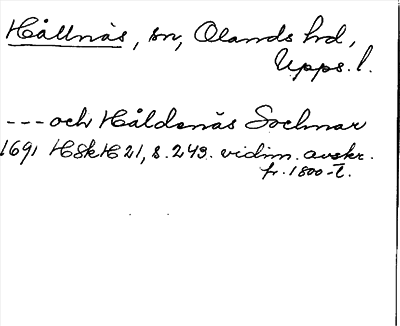 Hållnäs, sn, Olands hd,
Upps. l.
--- och Håldsnäs Sochnar
1691 HSkH 21, s. 243. vidim. avskr.
fr. 1800-t.